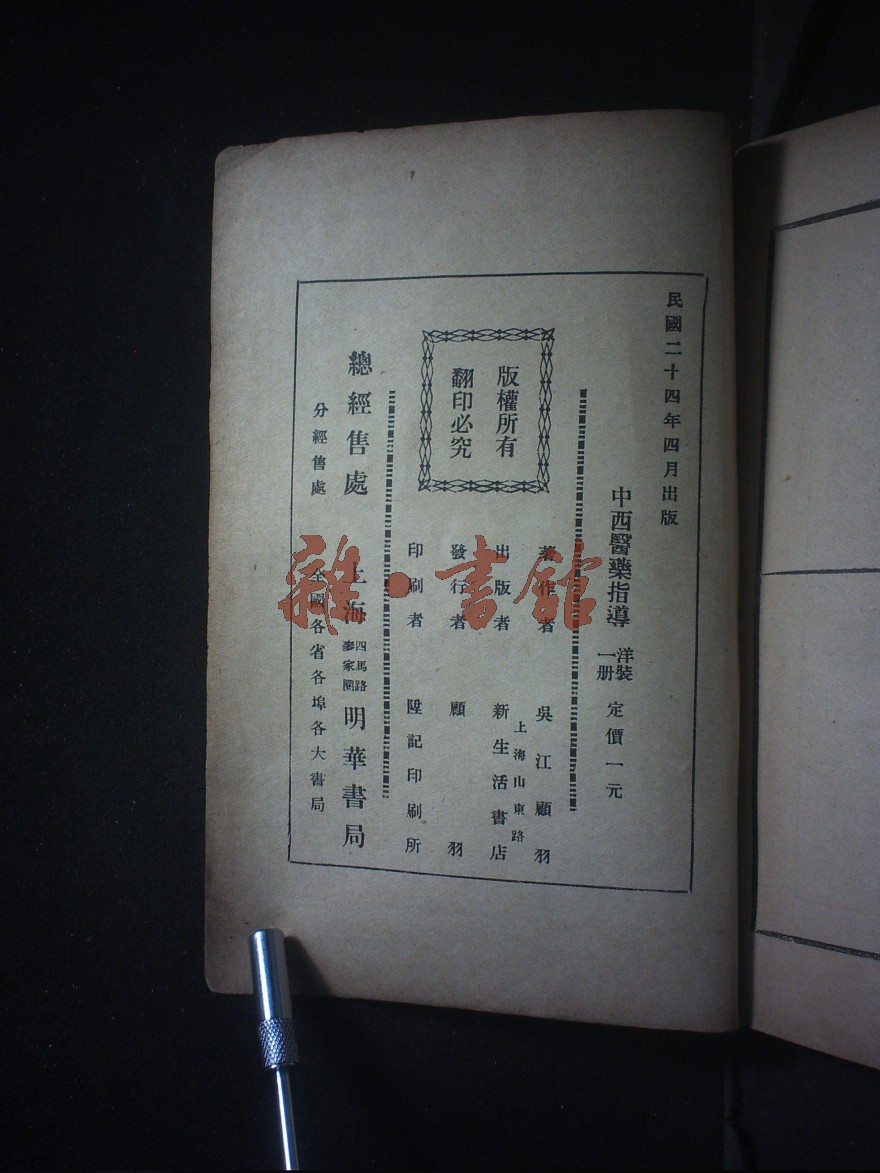 民國二十四年四月出版
中西醫藥指導
洋裝
一册
定價一元
版權所有
翻印必究
著作者 吳江顧羽
上海山東路
出版者 新生活書店
發行者 顧羽
印刷者 陞記印刷所
總經售處 上海
四馬路
麥家圈
明華書局
分經售處 全國各省各埠各大書局
雜·書館